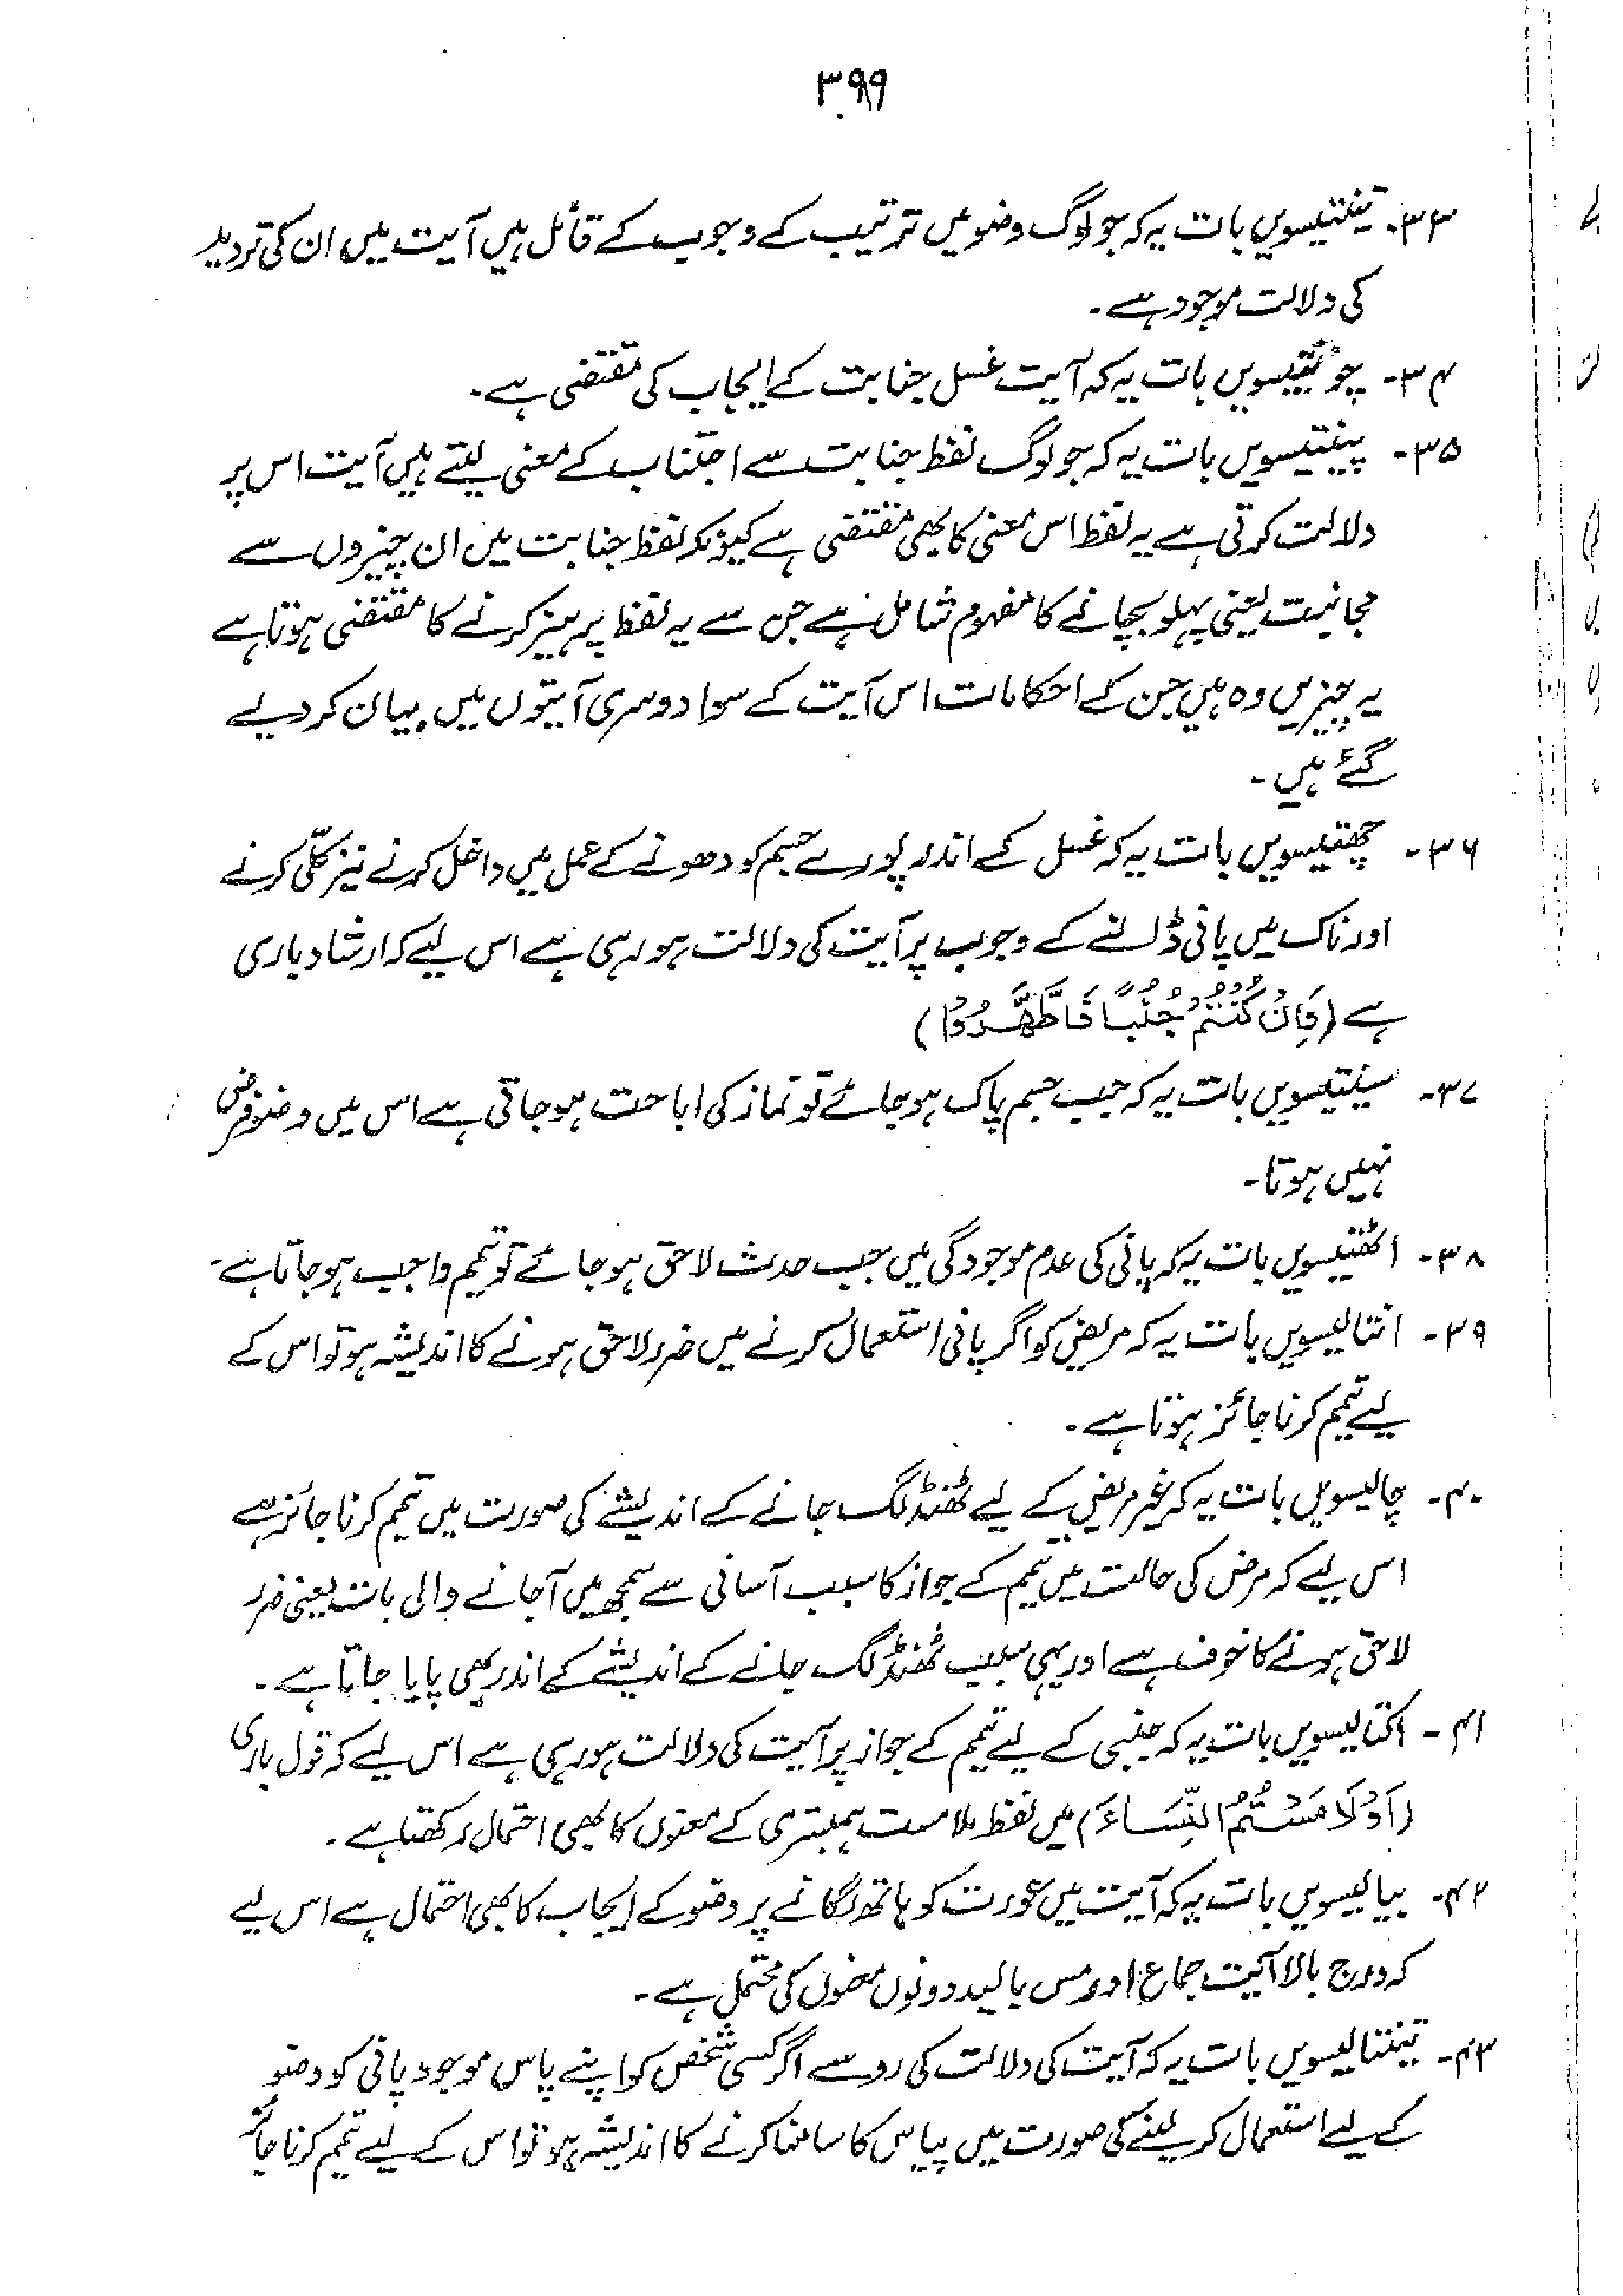 ۳۹۹
۳۳۔ تینتیسویں بات یہ کہ جو لوگ وضو میں ترتیب کے وجوب کے قائل ہیں آیت میں ان کی تردید
کی دلالت موجود ہے۔
۳۴۔ چونتیسویں بات یہ کہ آیت غسل جنابت کے ایجاب کی مقتضی ہے۔
۳۵۔ پینتیسویں بات یہ کہ جو لوگ لفظ جنابت سے اجتناب کے معنی لیتے ہیں آیت اس پر
دلالت کرتی ہے یہ لفظ اس معنی کا بھی مقتضی ہے کیونکہ لفظ جنابت میں ان چیزوں سے
مجانبت یعنی پہلو بچانے کا مفہوم شامل ہے جس سے یہ لفظ پرہیز کرنے کا مقتضی ہوتا ہے
یہ چیزیں وہ ہیں جن کے احکامات اس آیت کے سوا دوسری آیتوں میں بیان کر دیے
گئے ہیں۔
۳۶۔ چھتیسویں بات یہ کہ غسل کے اندر پورے جسم کو دھونے کے عمل میں داخل کرنے نیز کلّی کرنے
اور ناک میں پانی ڈالنے کے وجوب پر آیت کی دلالت ہو رہی ہے اس لیے کہ ارشاد باری
ہے (فَاِنْ كُنْتُمْ جُنُبًا فَاطَّهَّرُوْا)
۳۷۔ سینتیسویں بات یہ کہ جب جسم پاک ہو جائے تو نماز کی اباحت ہو جاتی ہے اس میں وضو فرض
نہیں ہوتا۔
۳۸۔ اڑتیسویں بات یہ کہ پانی کی عدم موجودگی میں جب حدث لاحق ہو جائے تو تیمم واجب ہو جاتا ہے۔
۳۹۔ انتالیسویں بات یہ کہ مریض کو اگر پانی استعمال کرنے میں ضرر لاحق ہونے کا اندیشہ ہو تو اس کے
لیے تیمم کرنا جائز ہوتا ہے۔
۴۰۔ چالیسویں بات یہ کہ غیر مریض کے لیے ٹھنڈ لگ جانے کے اندیشے کی صورت میں تیمم کرنا جائز ہے
اس لیے کہ مرض کی حالت میں تیمم کے جواز کا سبب آسانی سے سمجھ میں آجانے والی بات یعنی ضرر
لاحق ہونے کا خوف ہے اور یہی سبب ٹھنڈ لگ جانے کے اندیشے کے اندر بھی پایا جاتا ہے۔
۴۱۔ اکتالیسویں بات یہ کہ جنبی کے لیے تیمم کے جواز پر آیت کی دلالت ہو رہی ہے اس لیے کہ قول باری
(اَوْ لَامَسْتُمُ النِّسَاءَ) میں لفظ ملامست ہمبستری کے معنوں کا بھی احتمال رکھتا ہے۔
۴۲۔ بیالیسویں بات یہ کہ آیت میں عورت کو ہاتھ لگانے پر وضو کے ایجاب کا بھی احتمال ہے اس لیے
کہ درج بالا آیت جماع اور مس بالید دونوں معنوں کی محتمل ہے۔
۴۳۔ تینتالیسویں بات یہ کہ آیت کی دلالت کی رو سے اگر کسی شخص کو اپنے پاس موجود پانی کو وضو
کے لیے استعمال کر لینے کی صورت میں پیاس کا سامنا کرنے کا اندیشہ ہو تو اس کے لیے تیمم کرنا جائز